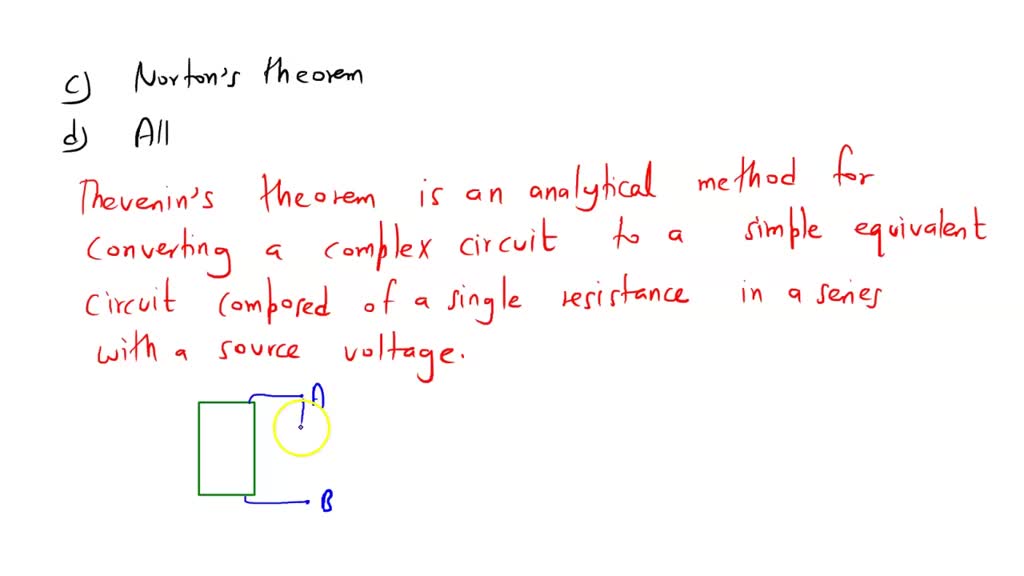 c) Norton's theorem
d) All
Thevenin's theorem is an analytical method for
converting a complex circuit to a simple equivalent
circuit composed of a single resistance in a series
with a source voltage.
A
B